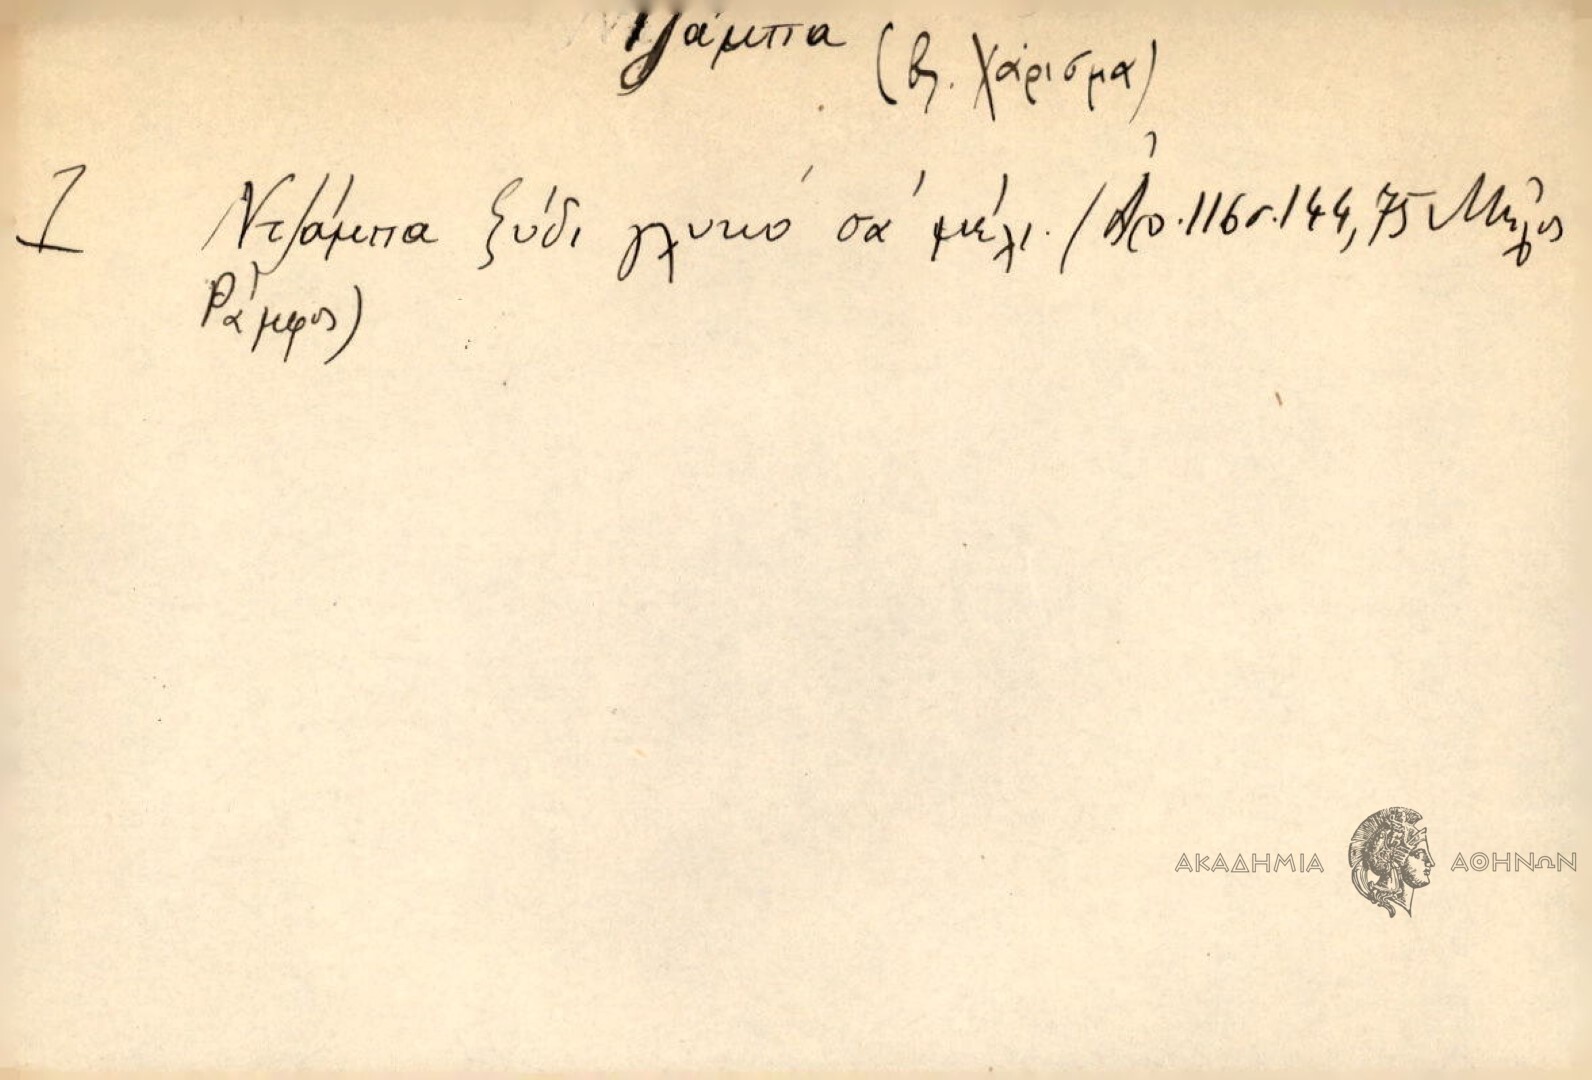 Τζάμπα (βλ. Χάρισμα)
1 Ντζάμπα ξύδι γλυκό σά μέλι. (Ἀρ. 116 σ. 144, 75 Μῆλος
Ράμφος)
ΑΚΑΔΗΜΙΑ ΑΘΗΝΩΝ